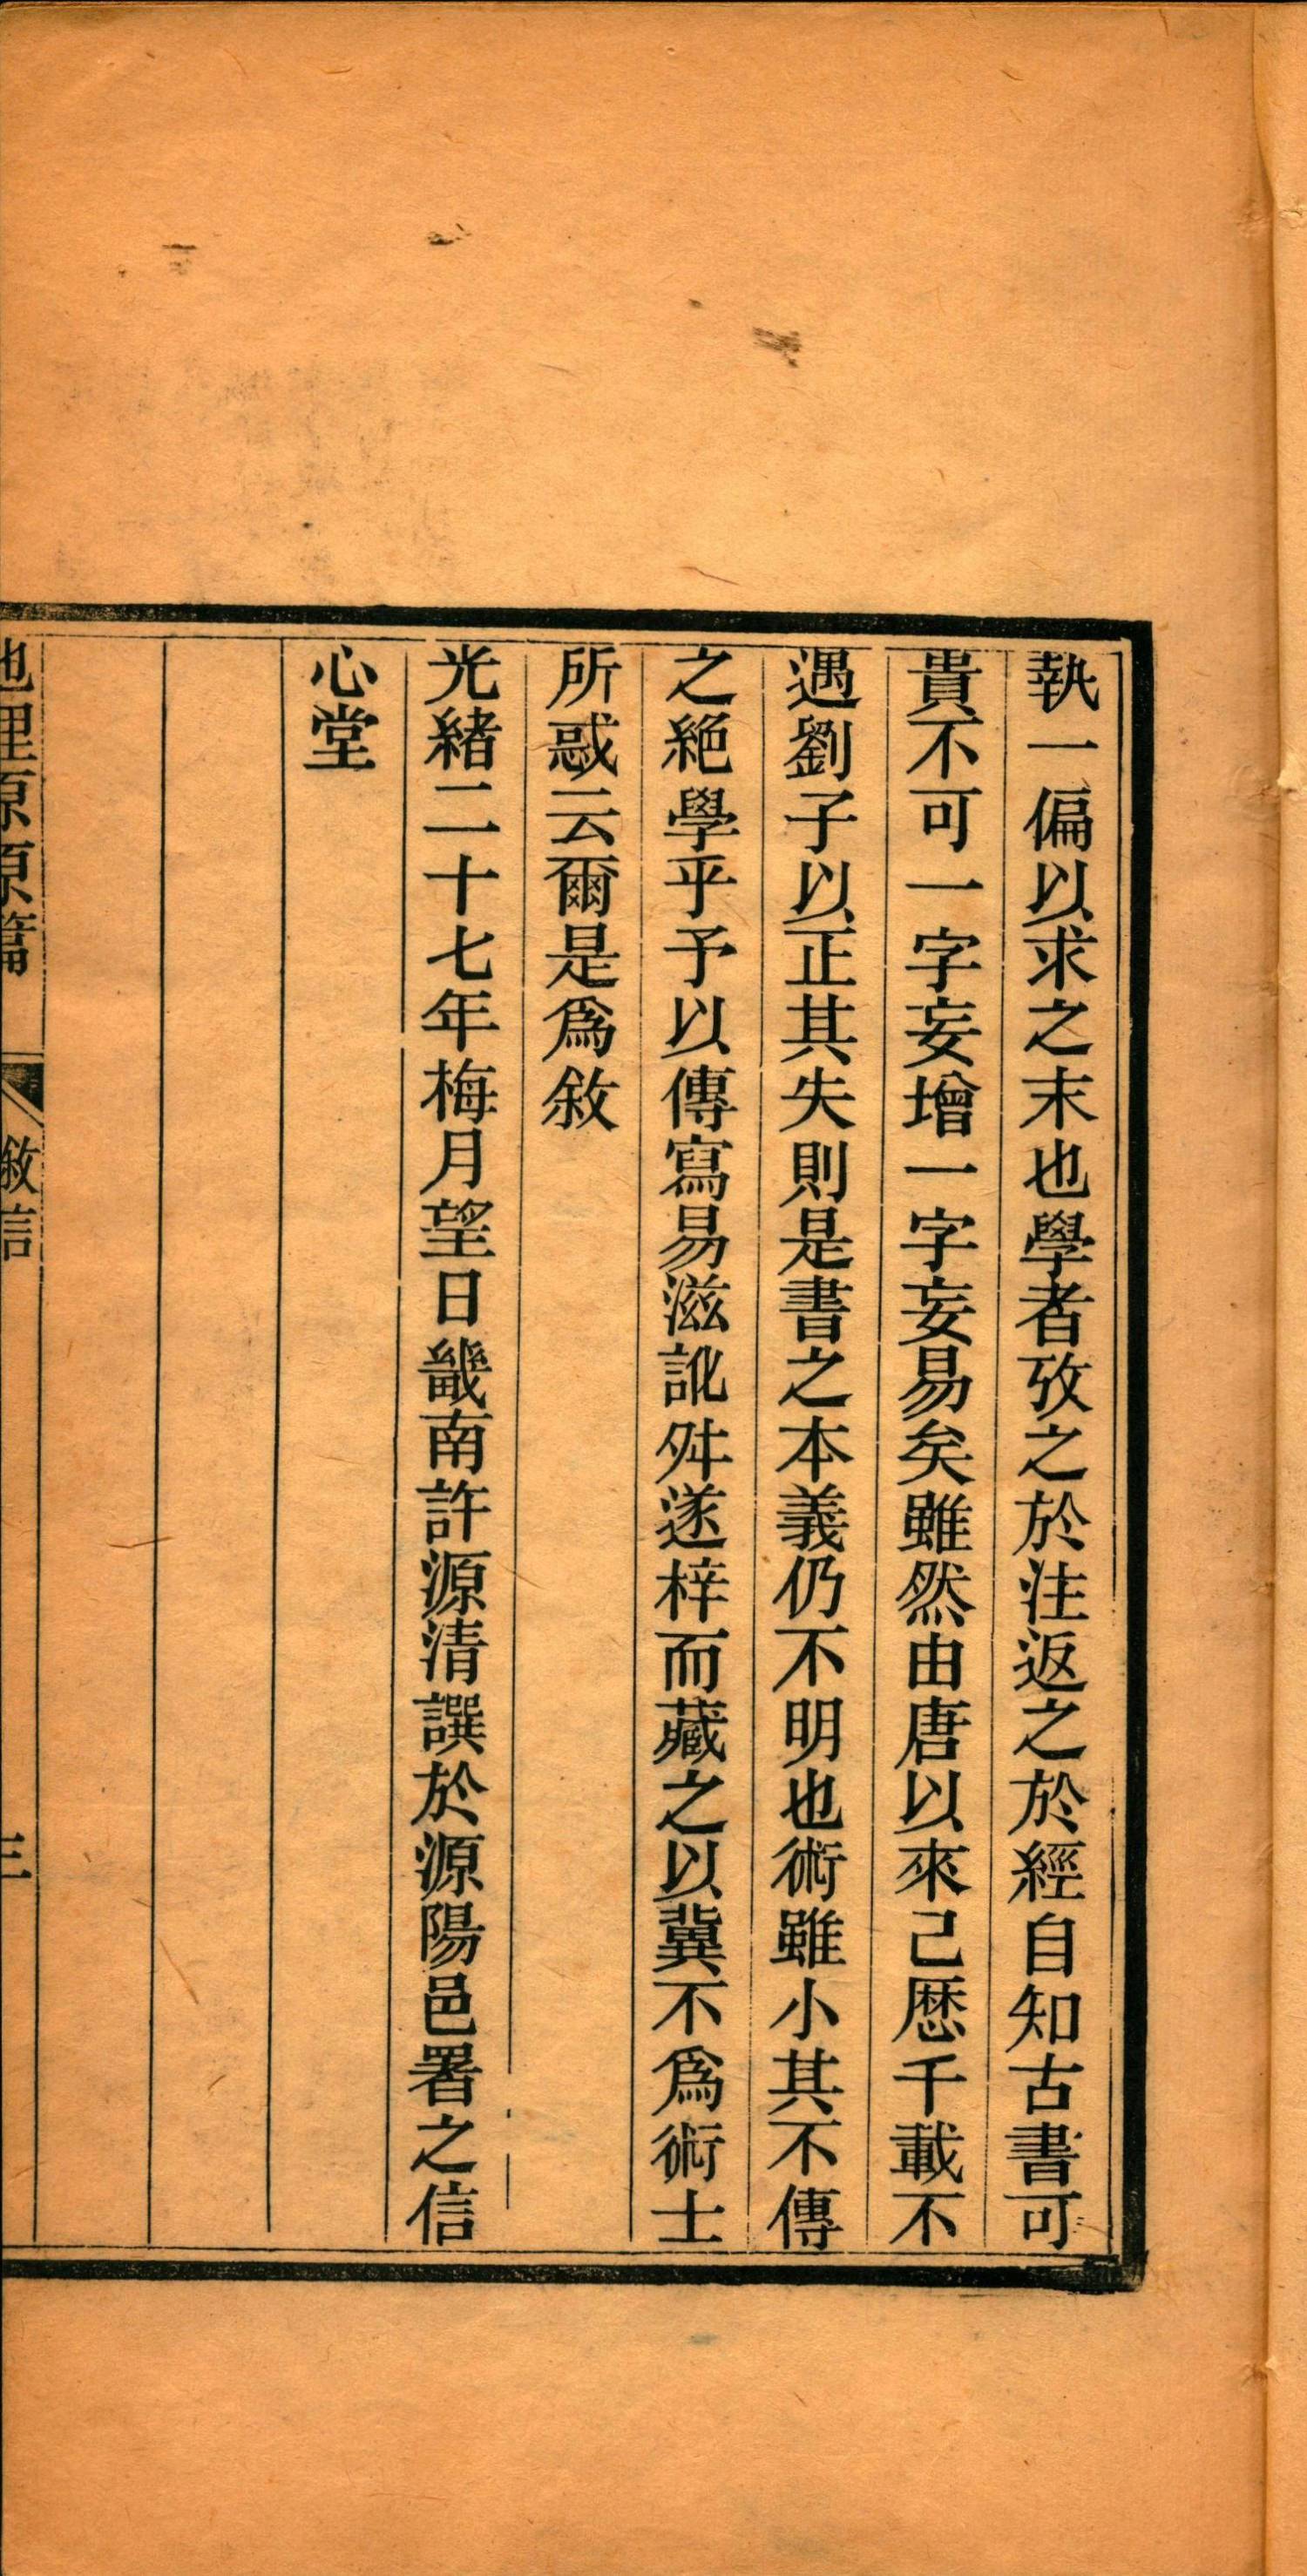 執一偏以求之末也學者攷之於注返之於經自知古書可
貴不可一字妄增一字妄易矣雖然由唐以來己歷千載不
遇劉子以正其失則是書之本義仍不明也術雖小其不傳
之絕學乎予以傳寫易滋訛舛遂梓而藏之以冀不爲術士
所惑云爾是爲敘
光緒二十七年梅月望日畿南許源清譔於源陽邑署之信
心堂
地理原原篇 敘言 三